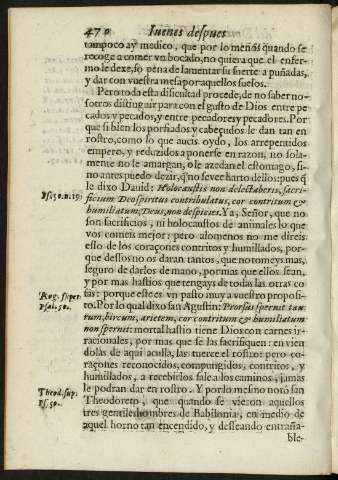 470 Iueues despues
tampoco ay medico, que por lo menos quando se
recoge a comer vn bocado, no quiera que el enfer-
mo le dexe, so pena de lamentar su suerte a puñadas,
y dar con vuestra mesa por aquellos suelos.
Pero toda esta dificultad procede, de no saber no-
sotros distinguir para con el gusto de Dios entre pe-
cados y pecados, y entre pecadores y pecadores. Por
que si bien los porfiados y cabeçudos le dan tan en
rostro, como lo que aueis oydo, los arrepentidos
empero, y reduzidos a ponerse en razon, no sola-
mente no le amargan, ole azedan el estomago, si-
no antes puedo dezir, q̃ no se ve harto dellos: pues q̃
le dixo Dauid: Holocaustis non delectaberis, sacri-
Ps. 50. n. 19.
ficium Deo spiritus contribulatus, cor contritum &
humiliatum, Deus, non despicies. Ya, Señor, que no
son sacrificios, ni holocaustos de animales lo que
vos comeis mejor: pero alomenos no me direis
esso de los coraçones contritos y humillados, por-
que dessos no os daran tantos, que no tomeys mas,
seguro de darlos de mano, por mas que ellos sean,
y por mas hastios que tengays de todas las otras co-
sas: porque este es vn pasto muy a vuestro proposi-
Aug. super
psal. 50.
to. Por lo qual dixo san Agustin: Prorsus spernit tau-
rum, hircum, arietem, cor contritum & humiliatum
non spernit: mortal hastio tiene Dios con carnes ir-
racionales, por mas que se las sacrifiquen: en vien
dolas de aqui aculla, las tuerce el rostro: pero co-
raçones reconocidos, compungidos, contritos, y
humillados, a recebirlos sale a los caminos, jamas
le podran dar en rostro. Y por lo mesmo notò san
Theod. sup.
Ps. 50.
Theodoreto, que quando se vieron aquellos
tres gentileshombres de Babilonia, en medio de
aquel horno tan encendido, y desseando entraña-
ble-